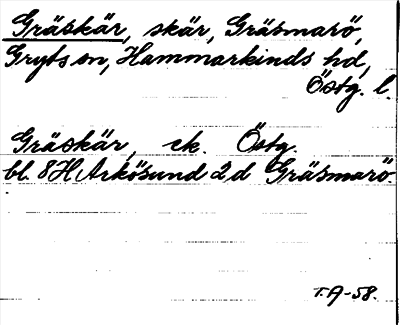 Gräskär, skär, Gräsmarö,
Gryts sn, Hammarkinds hd,
Östg. l.
Gräskär, ek. Östg.
bl. 8H Arkösund 2d Gräsmarö
T.A-58.